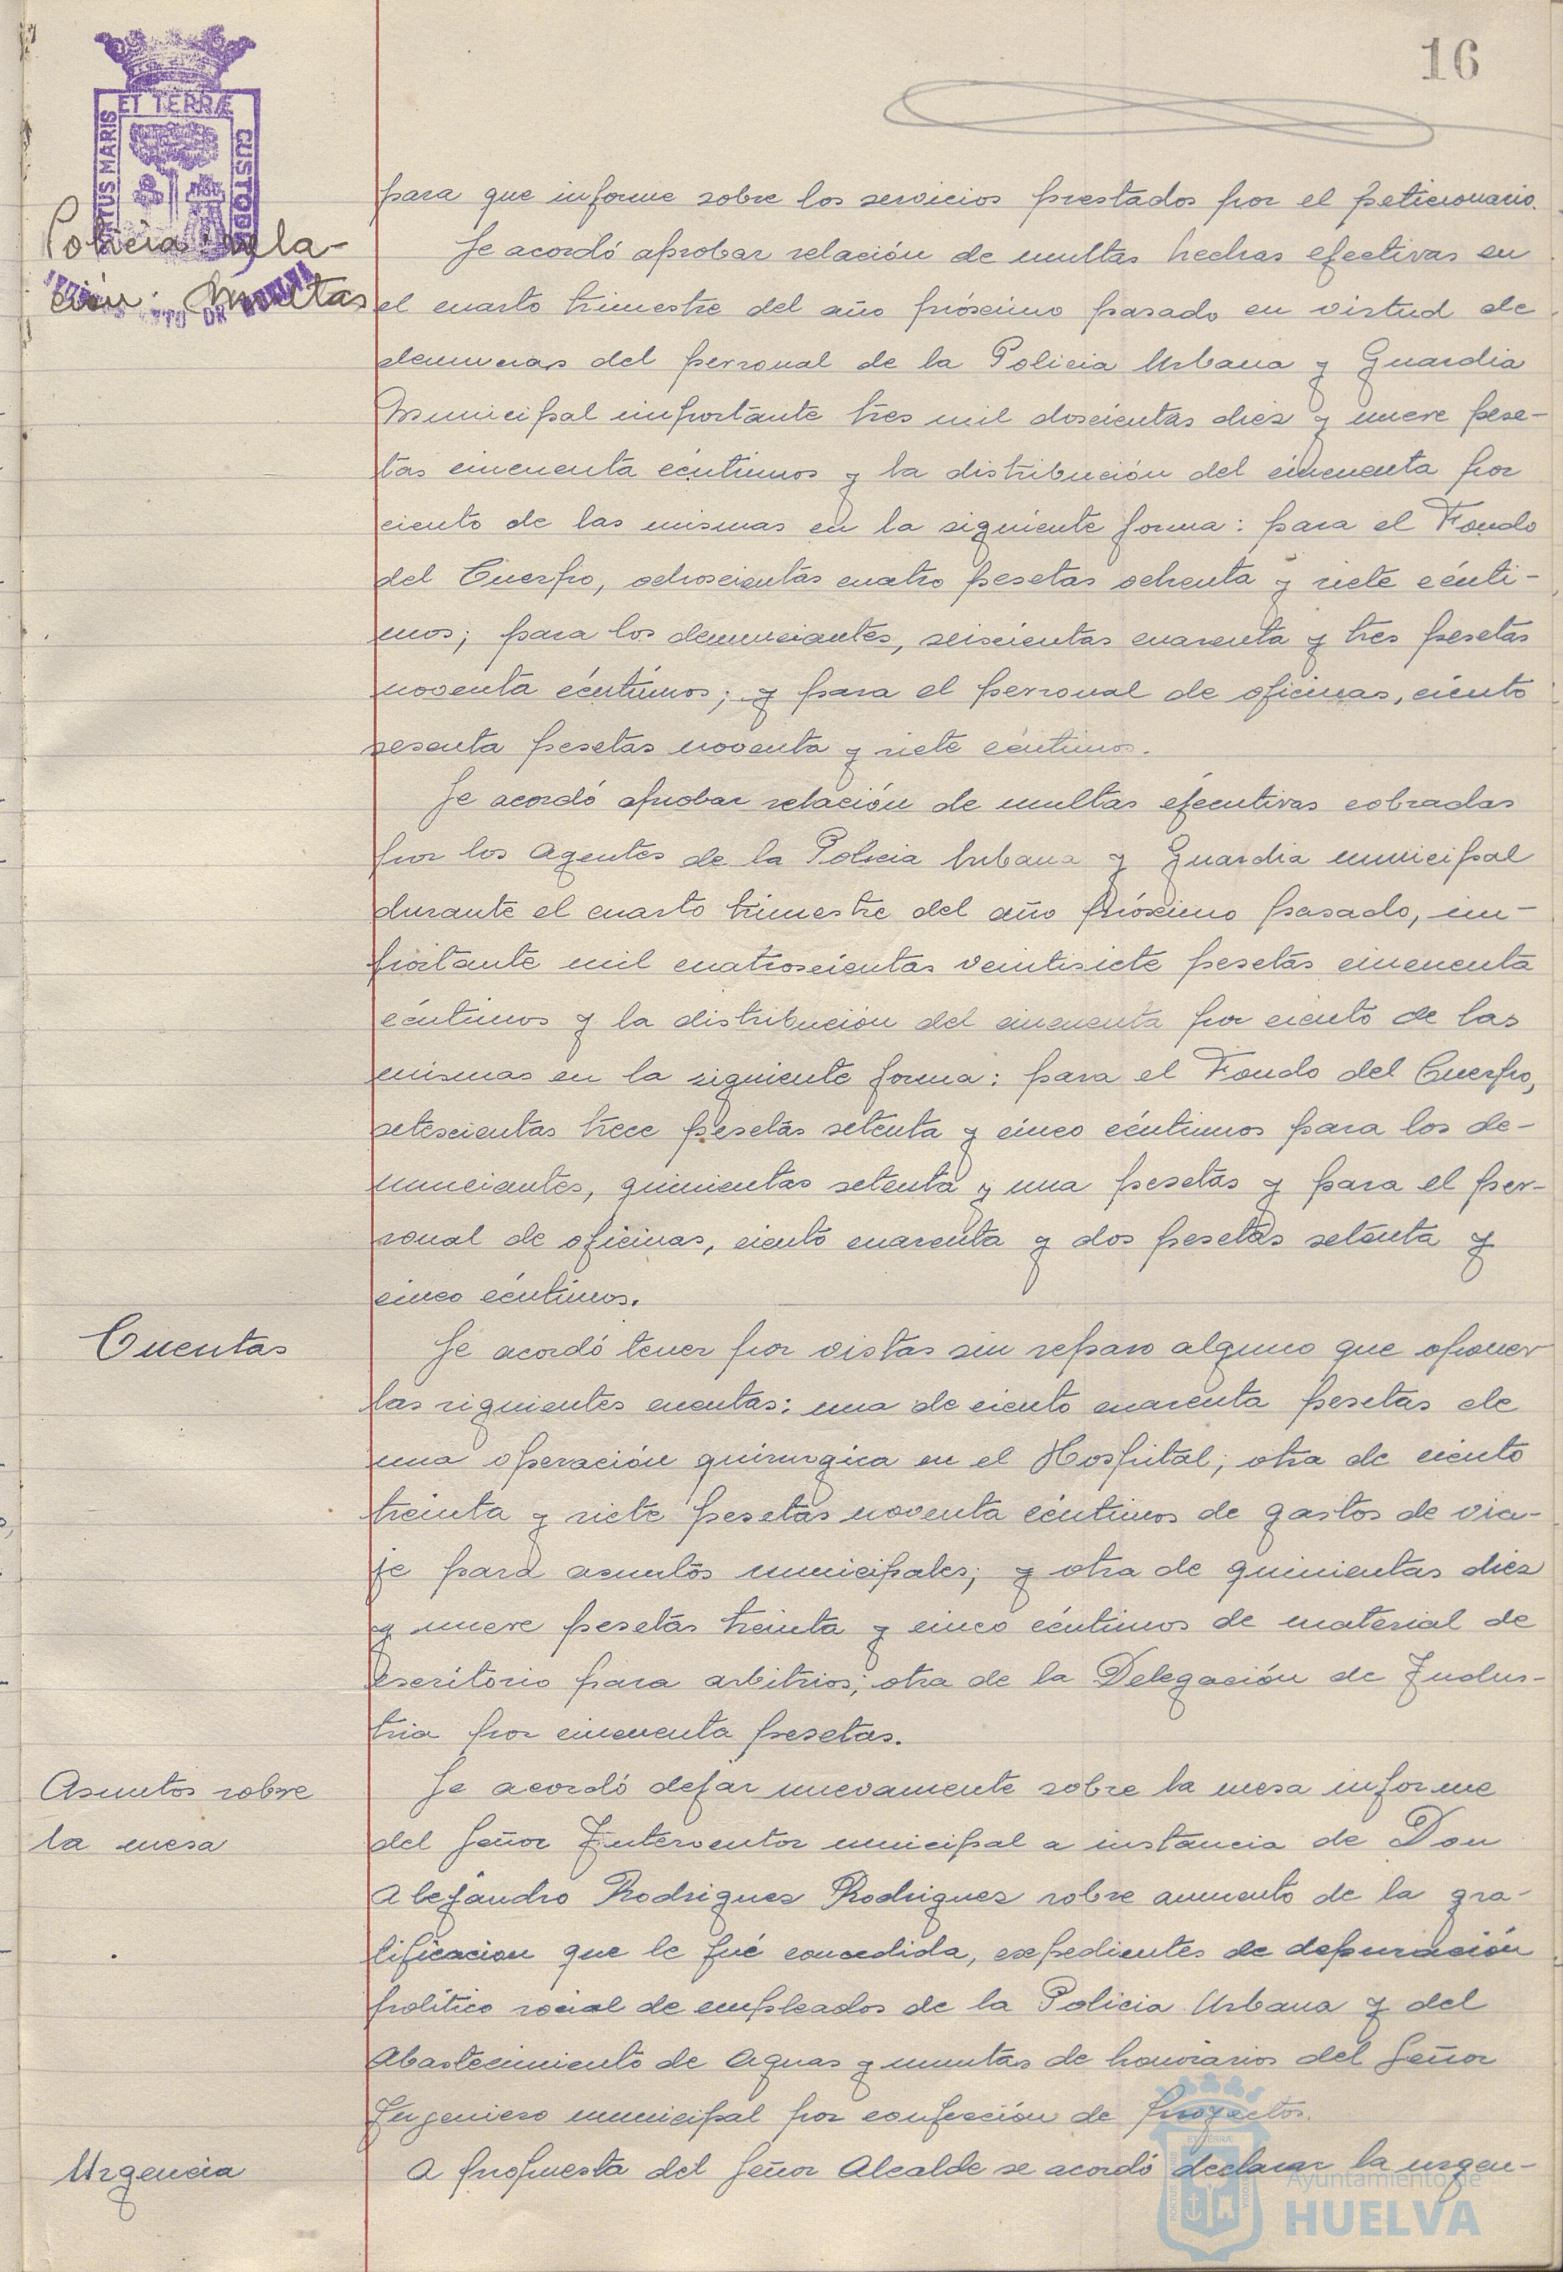 16
ET TERRÆ
PORTUS MARIS
CUSTODIA
para que informe sobre los servicios prestados por el peticionario.
Policia: rela-
Se acordó aprobar relación de multas hechas efectivas en
ción: Multas
el cuarto trimestre del año próximo pasado en virtud de
denuncias del personal de la Policia Urbana y Guardia
Municipal importante tres mil doscientas diez y nueve pese-
tas cincuenta céntimos y la distribución del cincuenta por
ciento de las mismas en la siguiente forma: para el Fondo
del Cuerpo, ochoscientas cuatro pesetas ochenta y siete cénti-
mos; para los denunciantes, seiscientas cuarenta y tres pesetas
noventa céntimos; y para el personal de oficinas, ciento
sesenta pesetas noventa y siete céntimos.
Se acordó aprobar relación de multas ejecutivas cobradas
por los Agentes de la Policia Urbana y Guardia municipal
durante el cuarto trimestre del año próximo pasado, im-
portante mil cuatroscientas veintisiete pesetas cincuenta
céntimos y la distribución del cincuenta por ciento de las
mismas en la siguiente forma: para el Fondo del Cuerpo,
setescientas trece pesetas setenta y cinco céntimos para los de-
nunciantes, quinientas setenta y una pesetas y para el per-
sonal de oficinas, ciento cuarenta y dos pesetas setenta y
cinco céntimos.
Cuentas
Se acordó tener por vistas sin reparo alguno que oponer
las siguientes cuentas: una de ciento cuarenta pesetas de
una operación quirurgica en el Hospital; otra de ciento
treinta y siete pesetas noventa céntimos de gastos de via-
je para asuntos municipales; y otra de quinientas diez
y nueve pesetas treinta y cinco céntimos de material de
escritorio para arbitrios; otra de la Delegación de Indus-
tria por cincuenta pesetas.
Asuntos sobre
la mesa
Se acordó dejar nuevamente sobre la mesa informe
del Señor Interventor municipal a instancia de Don
Alejandro Rodriguez Rodriguez sobre aumento de la gra-
tificacion que le fué concedida, expedientes de depuración
político social de empleados de la Policia Urbana y del
Abastecimiento de Aguas y minutas de honorarios del Señor
Ingeniero municipal por confección de proyectos.
Urgencia
A propuesta del Señor Alcalde se acordó declarar la urgen-
Ayuntamiento de
HUELVA